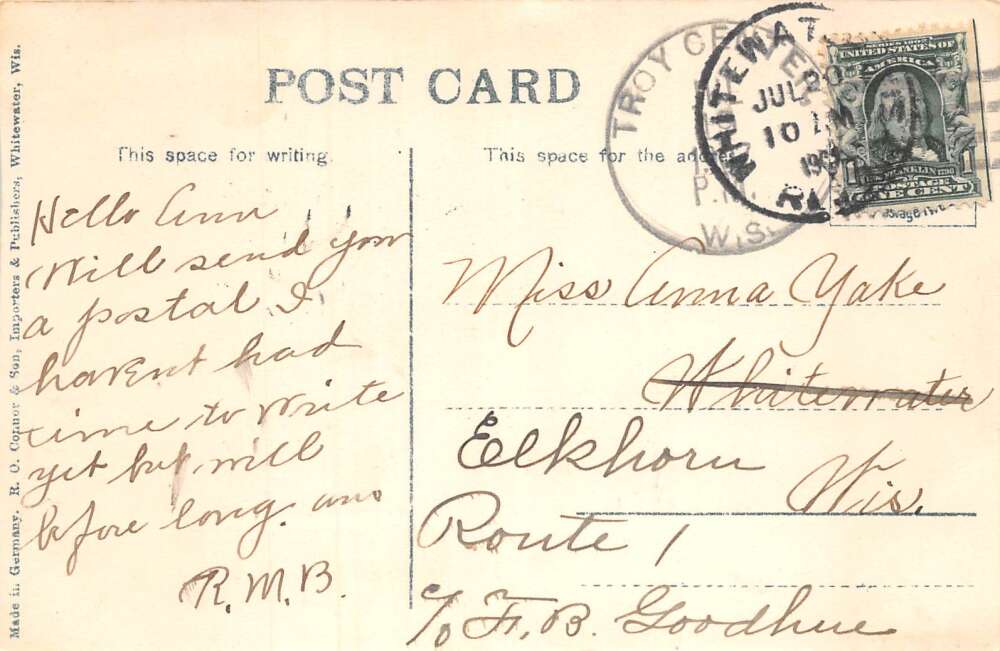 POST CARD
This space for writing.
This space for the
Hello Anna
Will send you
a postal I
havent had
time to write
yet but will
before long. ans
R.M.B.
Miss Anna Yake
Whitewater
Elkhorn Wis.
Route 1
c/o F.B. Goodhue
TROY CEN
P.M.
WIS.
WHITEWAT
JUL
10
190
SERIES 1902
UNITED STATES OF
AMERICA
FRANKLIN
POSTAGE
ONE CENT
Made in Germany. R. O. Connor & Son, Importers & Publishers, Whitewater, Wis.